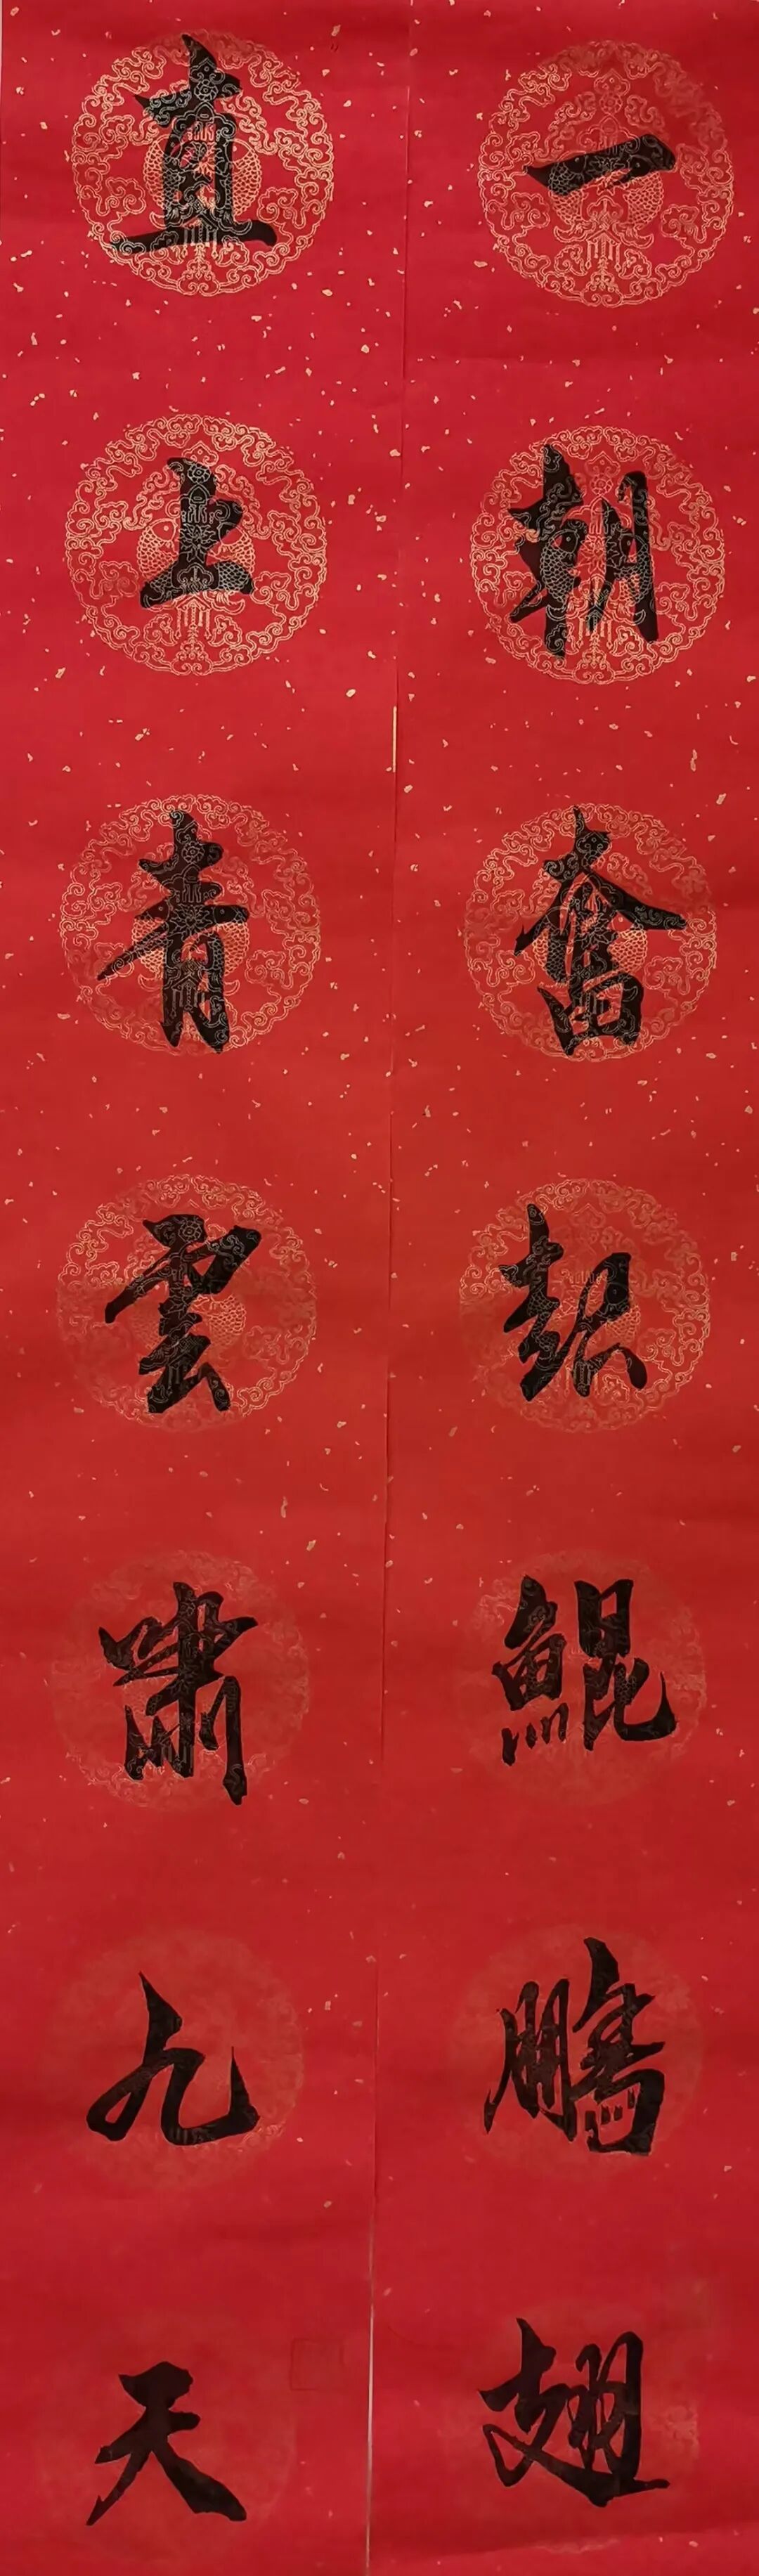 一朝奮起鯤鵬翅
直上青雲嘯九天